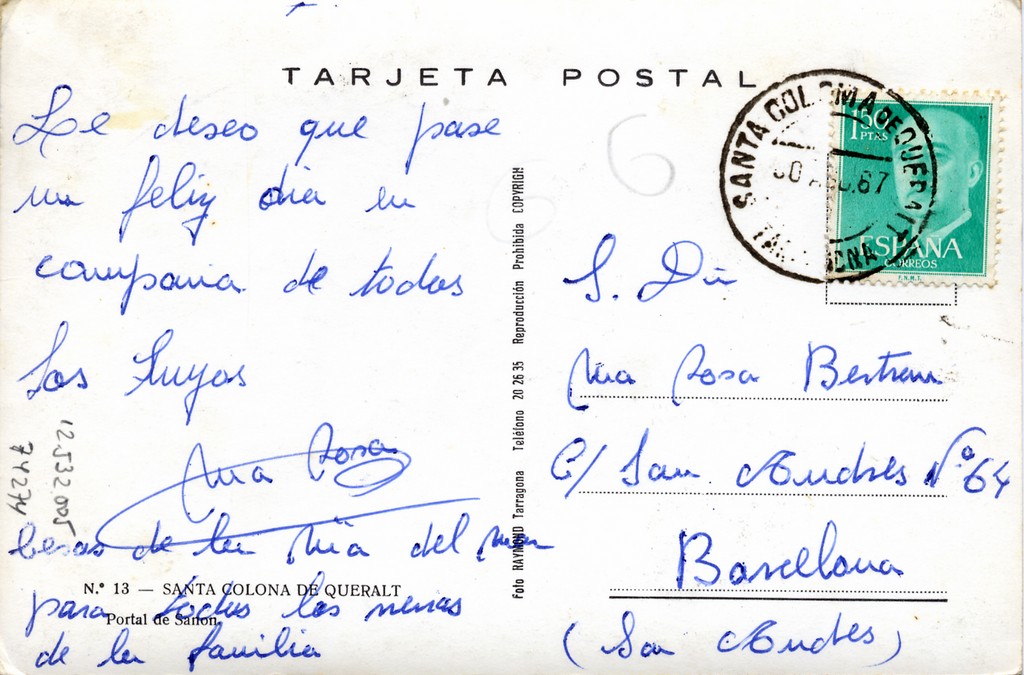 TARJETA POSTAL
Le deseo que pase
un feliz dia en
compania de todos
los suyos
Mia Rosa
besos de la Mia del Mar
para todos los nenas
de la familia
N.º 13 — SANTA COLONA DE QUERALT
Portal de Sañon
12.532.005
74274
Foto RAYMOND Tarragona Teléfono 20 26 35 Reproducción Prohibida COPYRIGH
6
SANTA COLOMA DE QUERALT
AGO.67
1'50
PTAS
ESPAÑA
CORREOS
F.N.M.T.
S. Dª
Mia Rosa Bertran
C/ San Andres Nº 64
Barcelona
(San Andres)